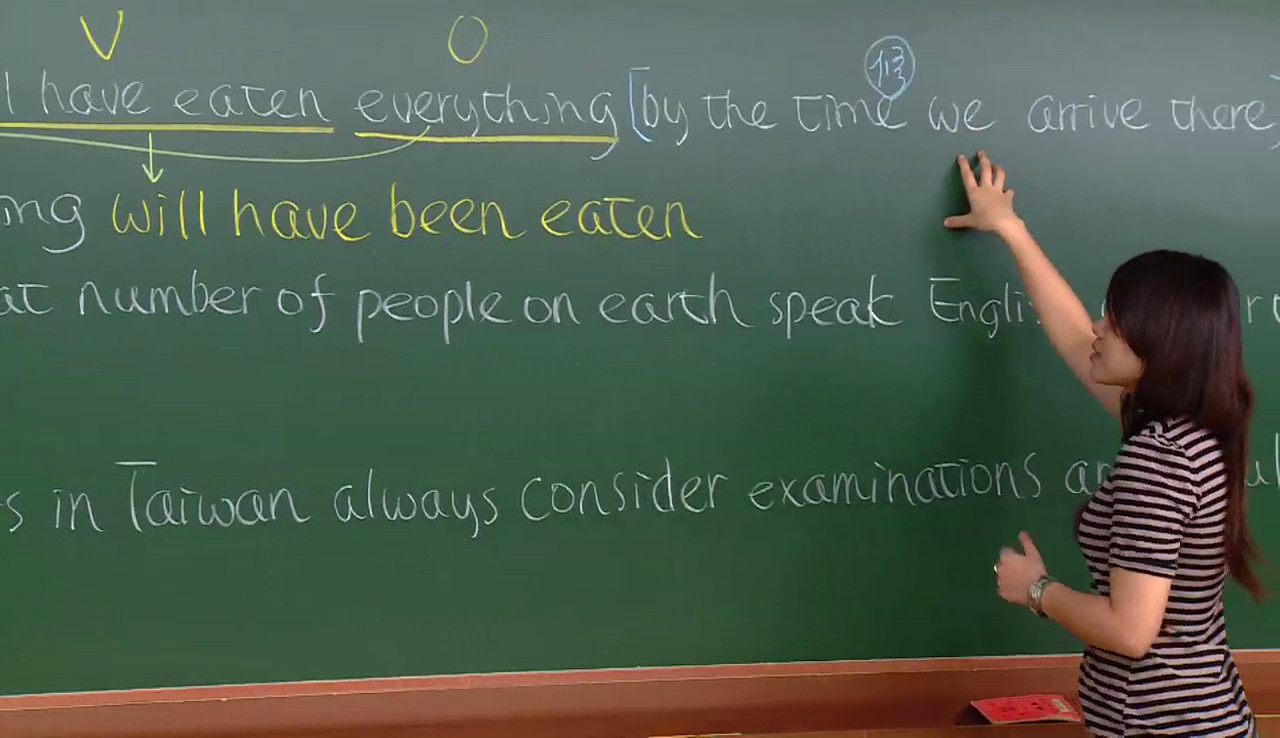 V O 修
l have eaten everything [by the time we arrive there
ing will have been eaten
at number of people on earth speak Engli
s in Taiwan always consider examinations